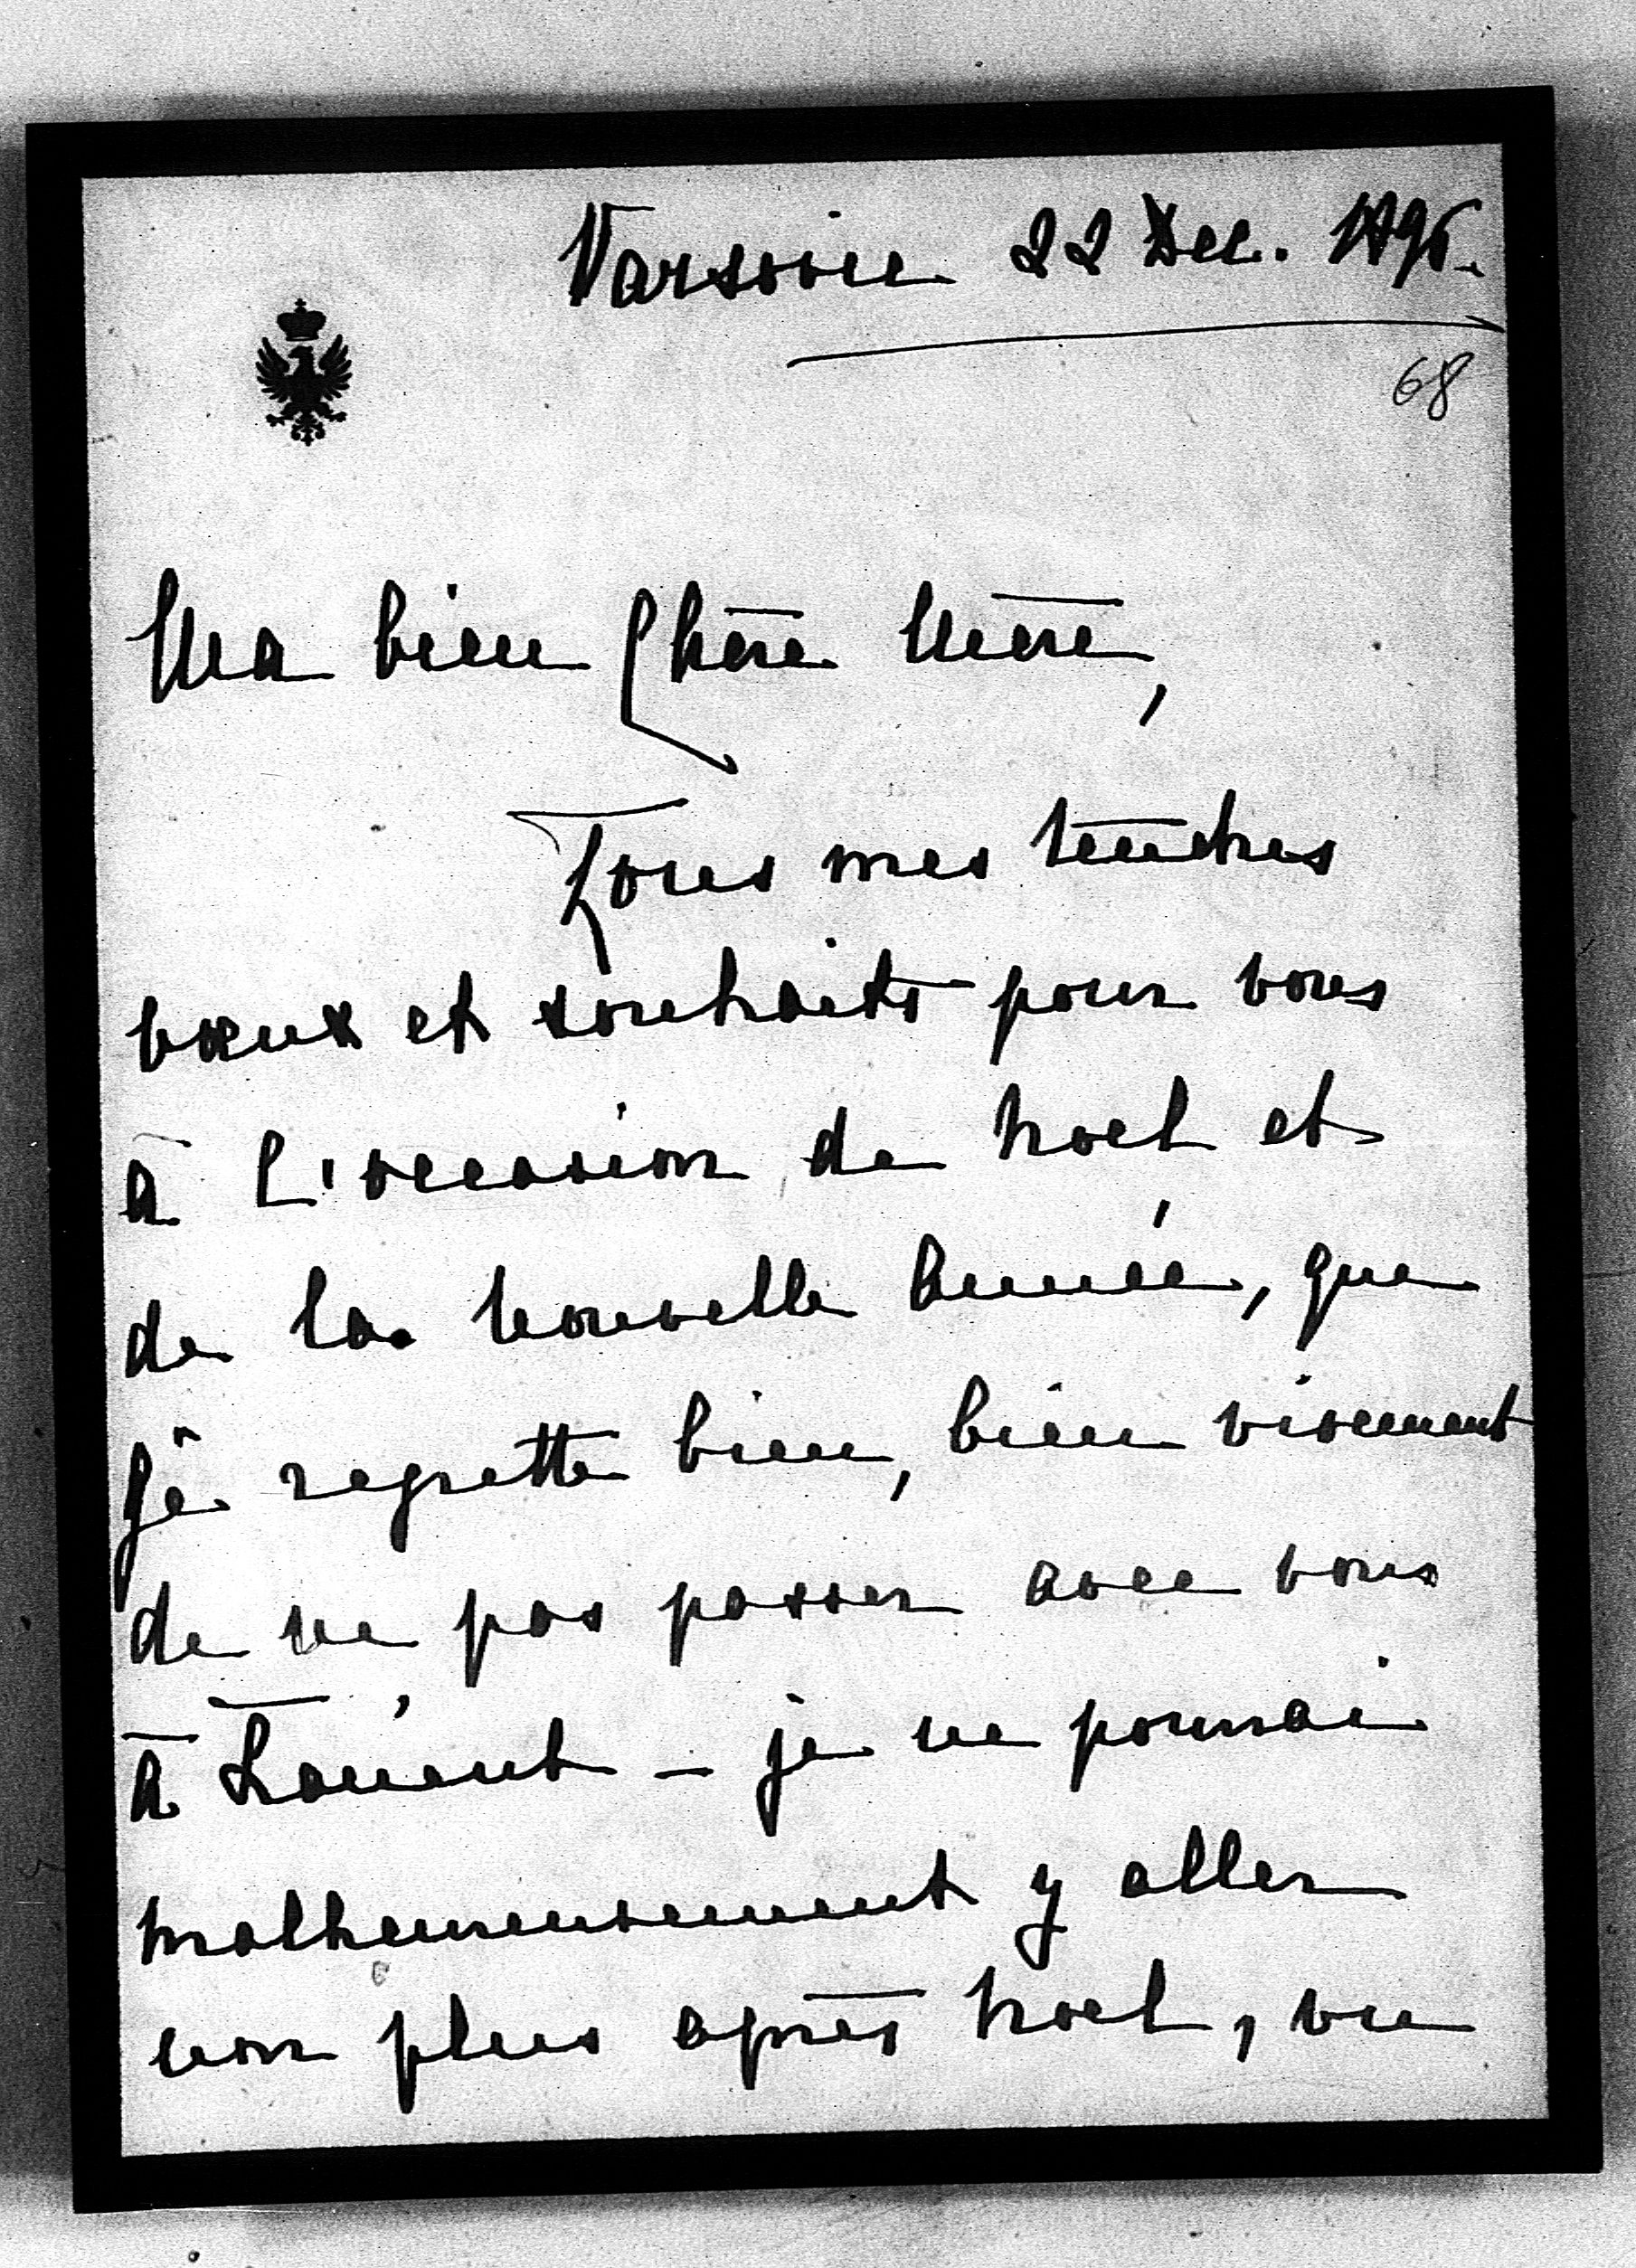 Varsovie 22 Dec. 1896.
68
Ma bien Chère Mère,
Tous mes tendres
vœux et souhaits pour vous
à l'occasion de Noel et
de la Nouvelle Année, que
je regrette bien, bien vivement
de ne pas passer avec vous
à Łancut – je ne pourrai
malheureusement y aller
non plus après Noel, vu